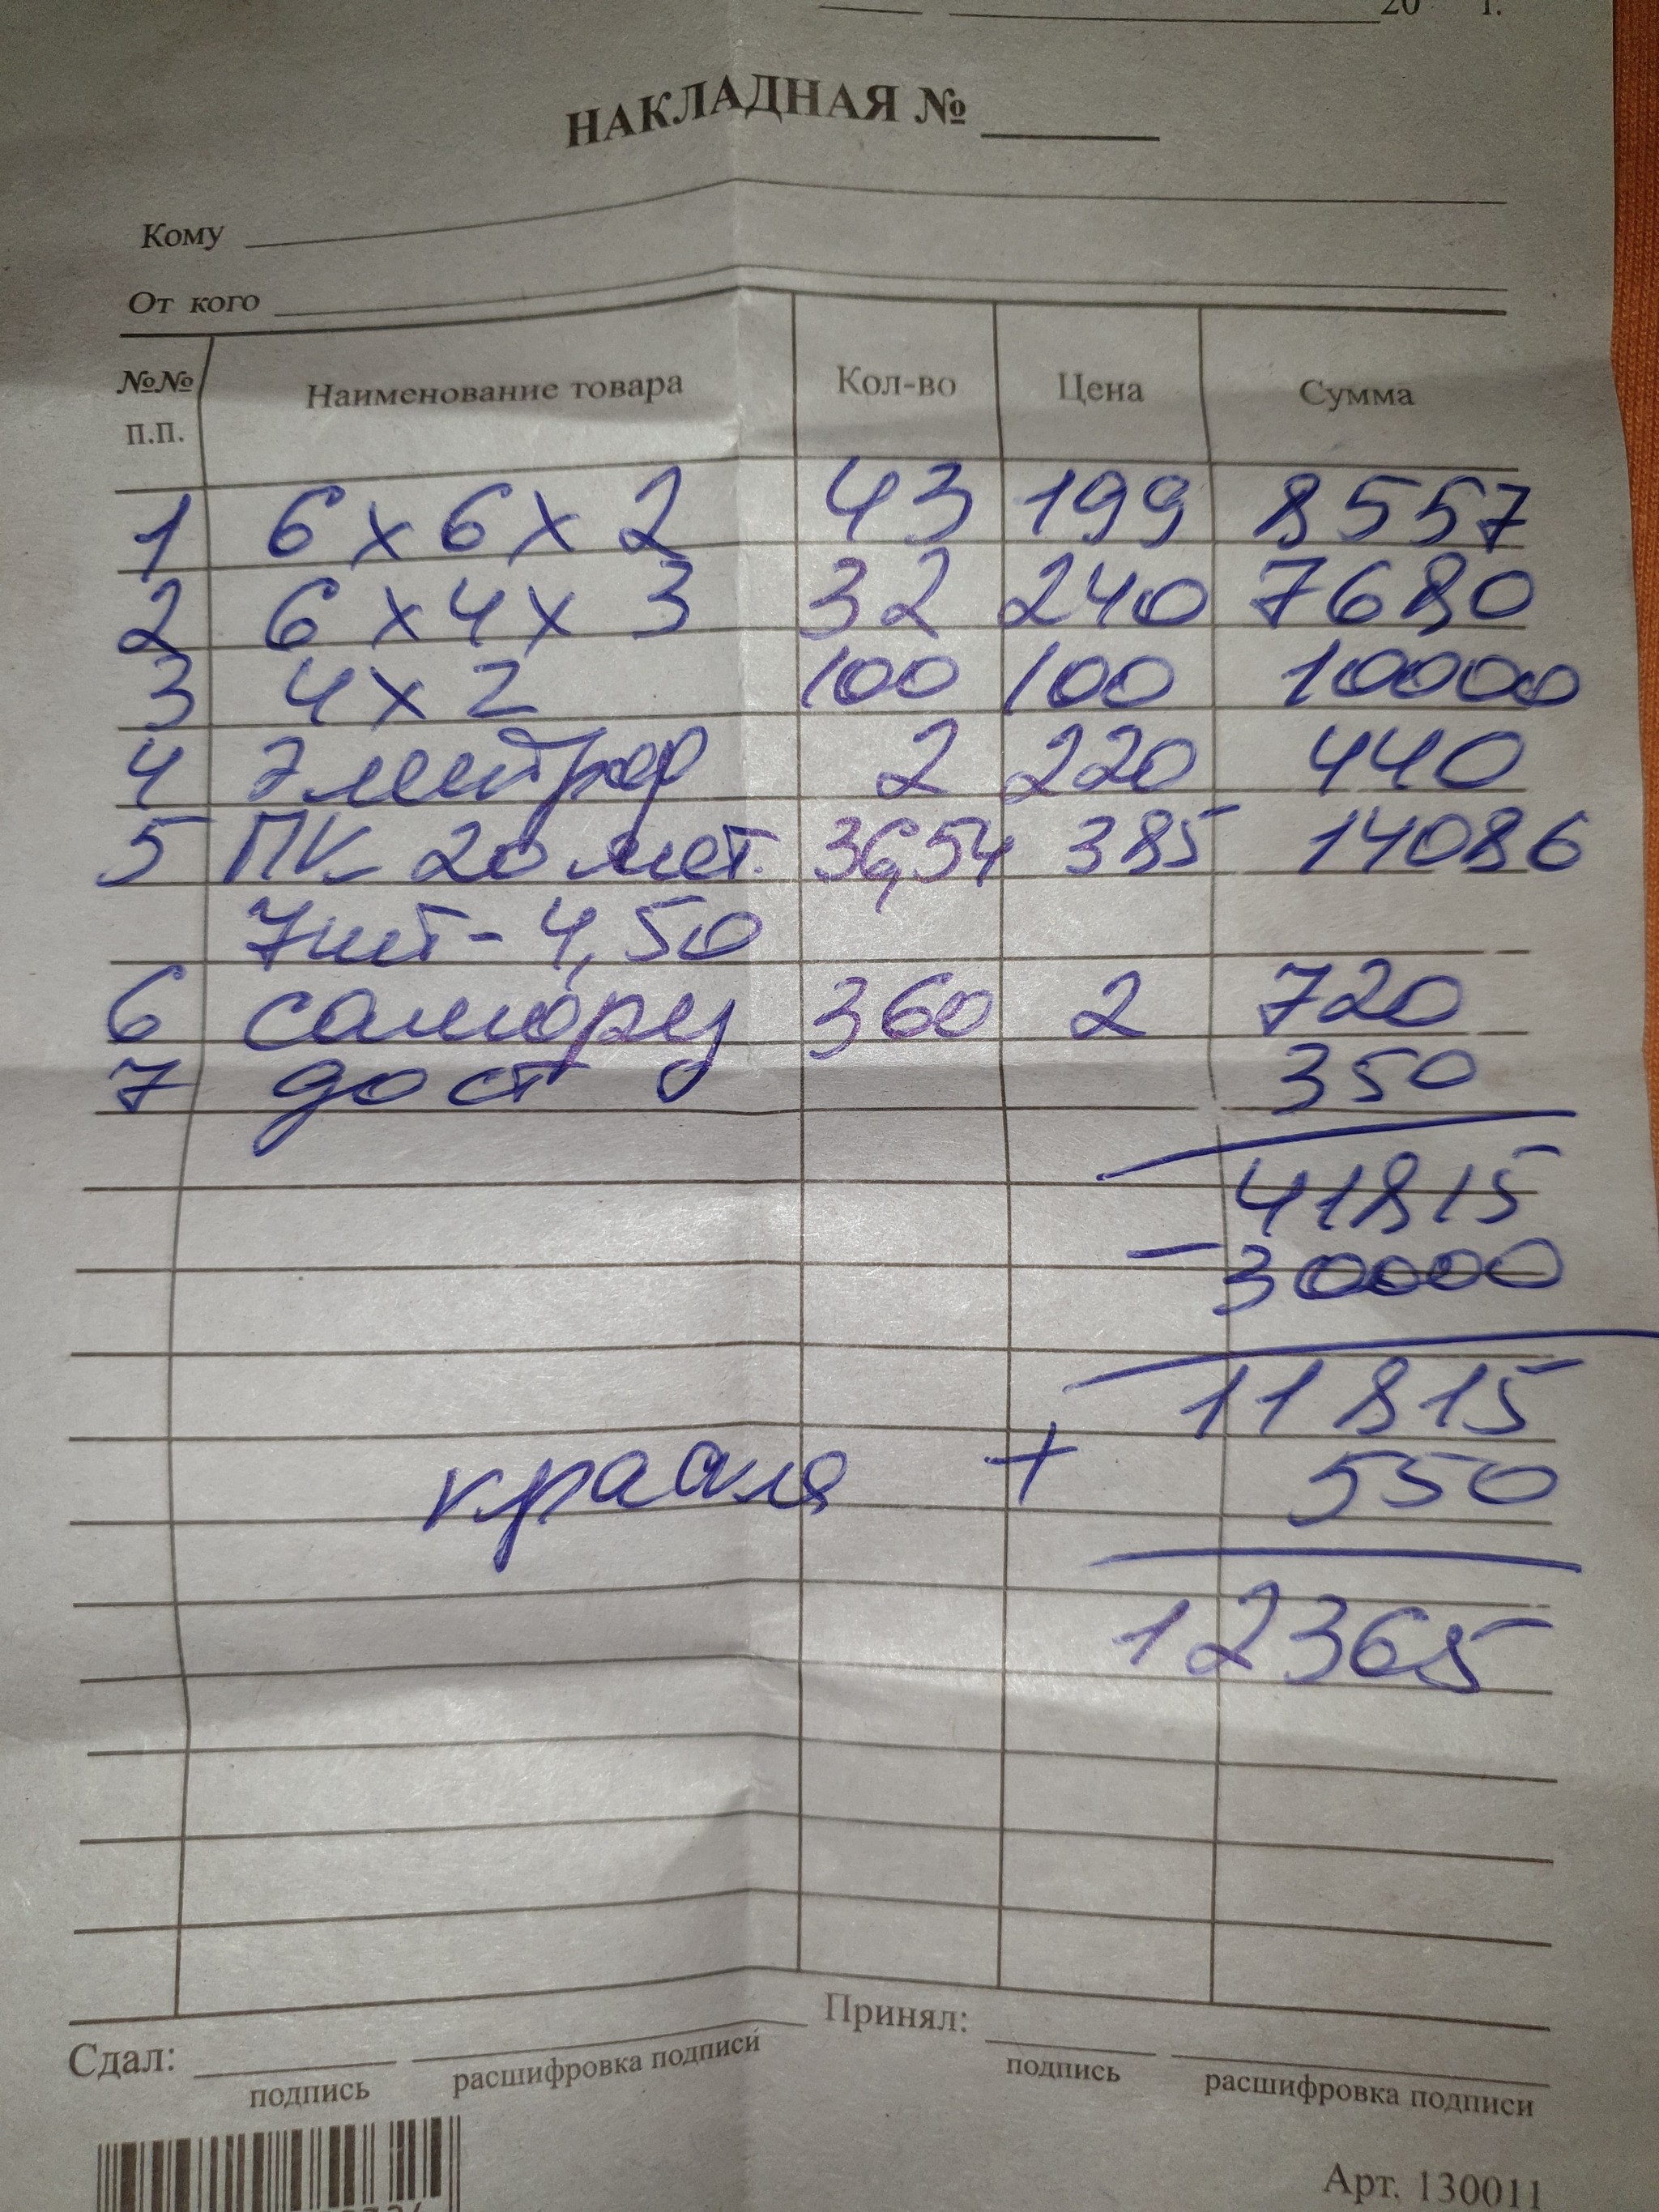 20 г.
НАКЛАДНАЯ №
Кому
От кого
№№ п.п. Наименование товара Кол-во Цена Сумма
1 6х6х2 43 199 8557
2 6х4х3 32 240 7680
3 4х2 100 100 10000
4 электрод 2 220 440
5 ПК 20 мат. 36,54 385 14086
7шт - 4,50
6 саморез 360 2 720
7 дост 350
41815
- 30000
11815
краска + 550
12365
Сдал: Принял:
подпись расшифровка подписи подпись расшифровка подписи
Арт. 130011